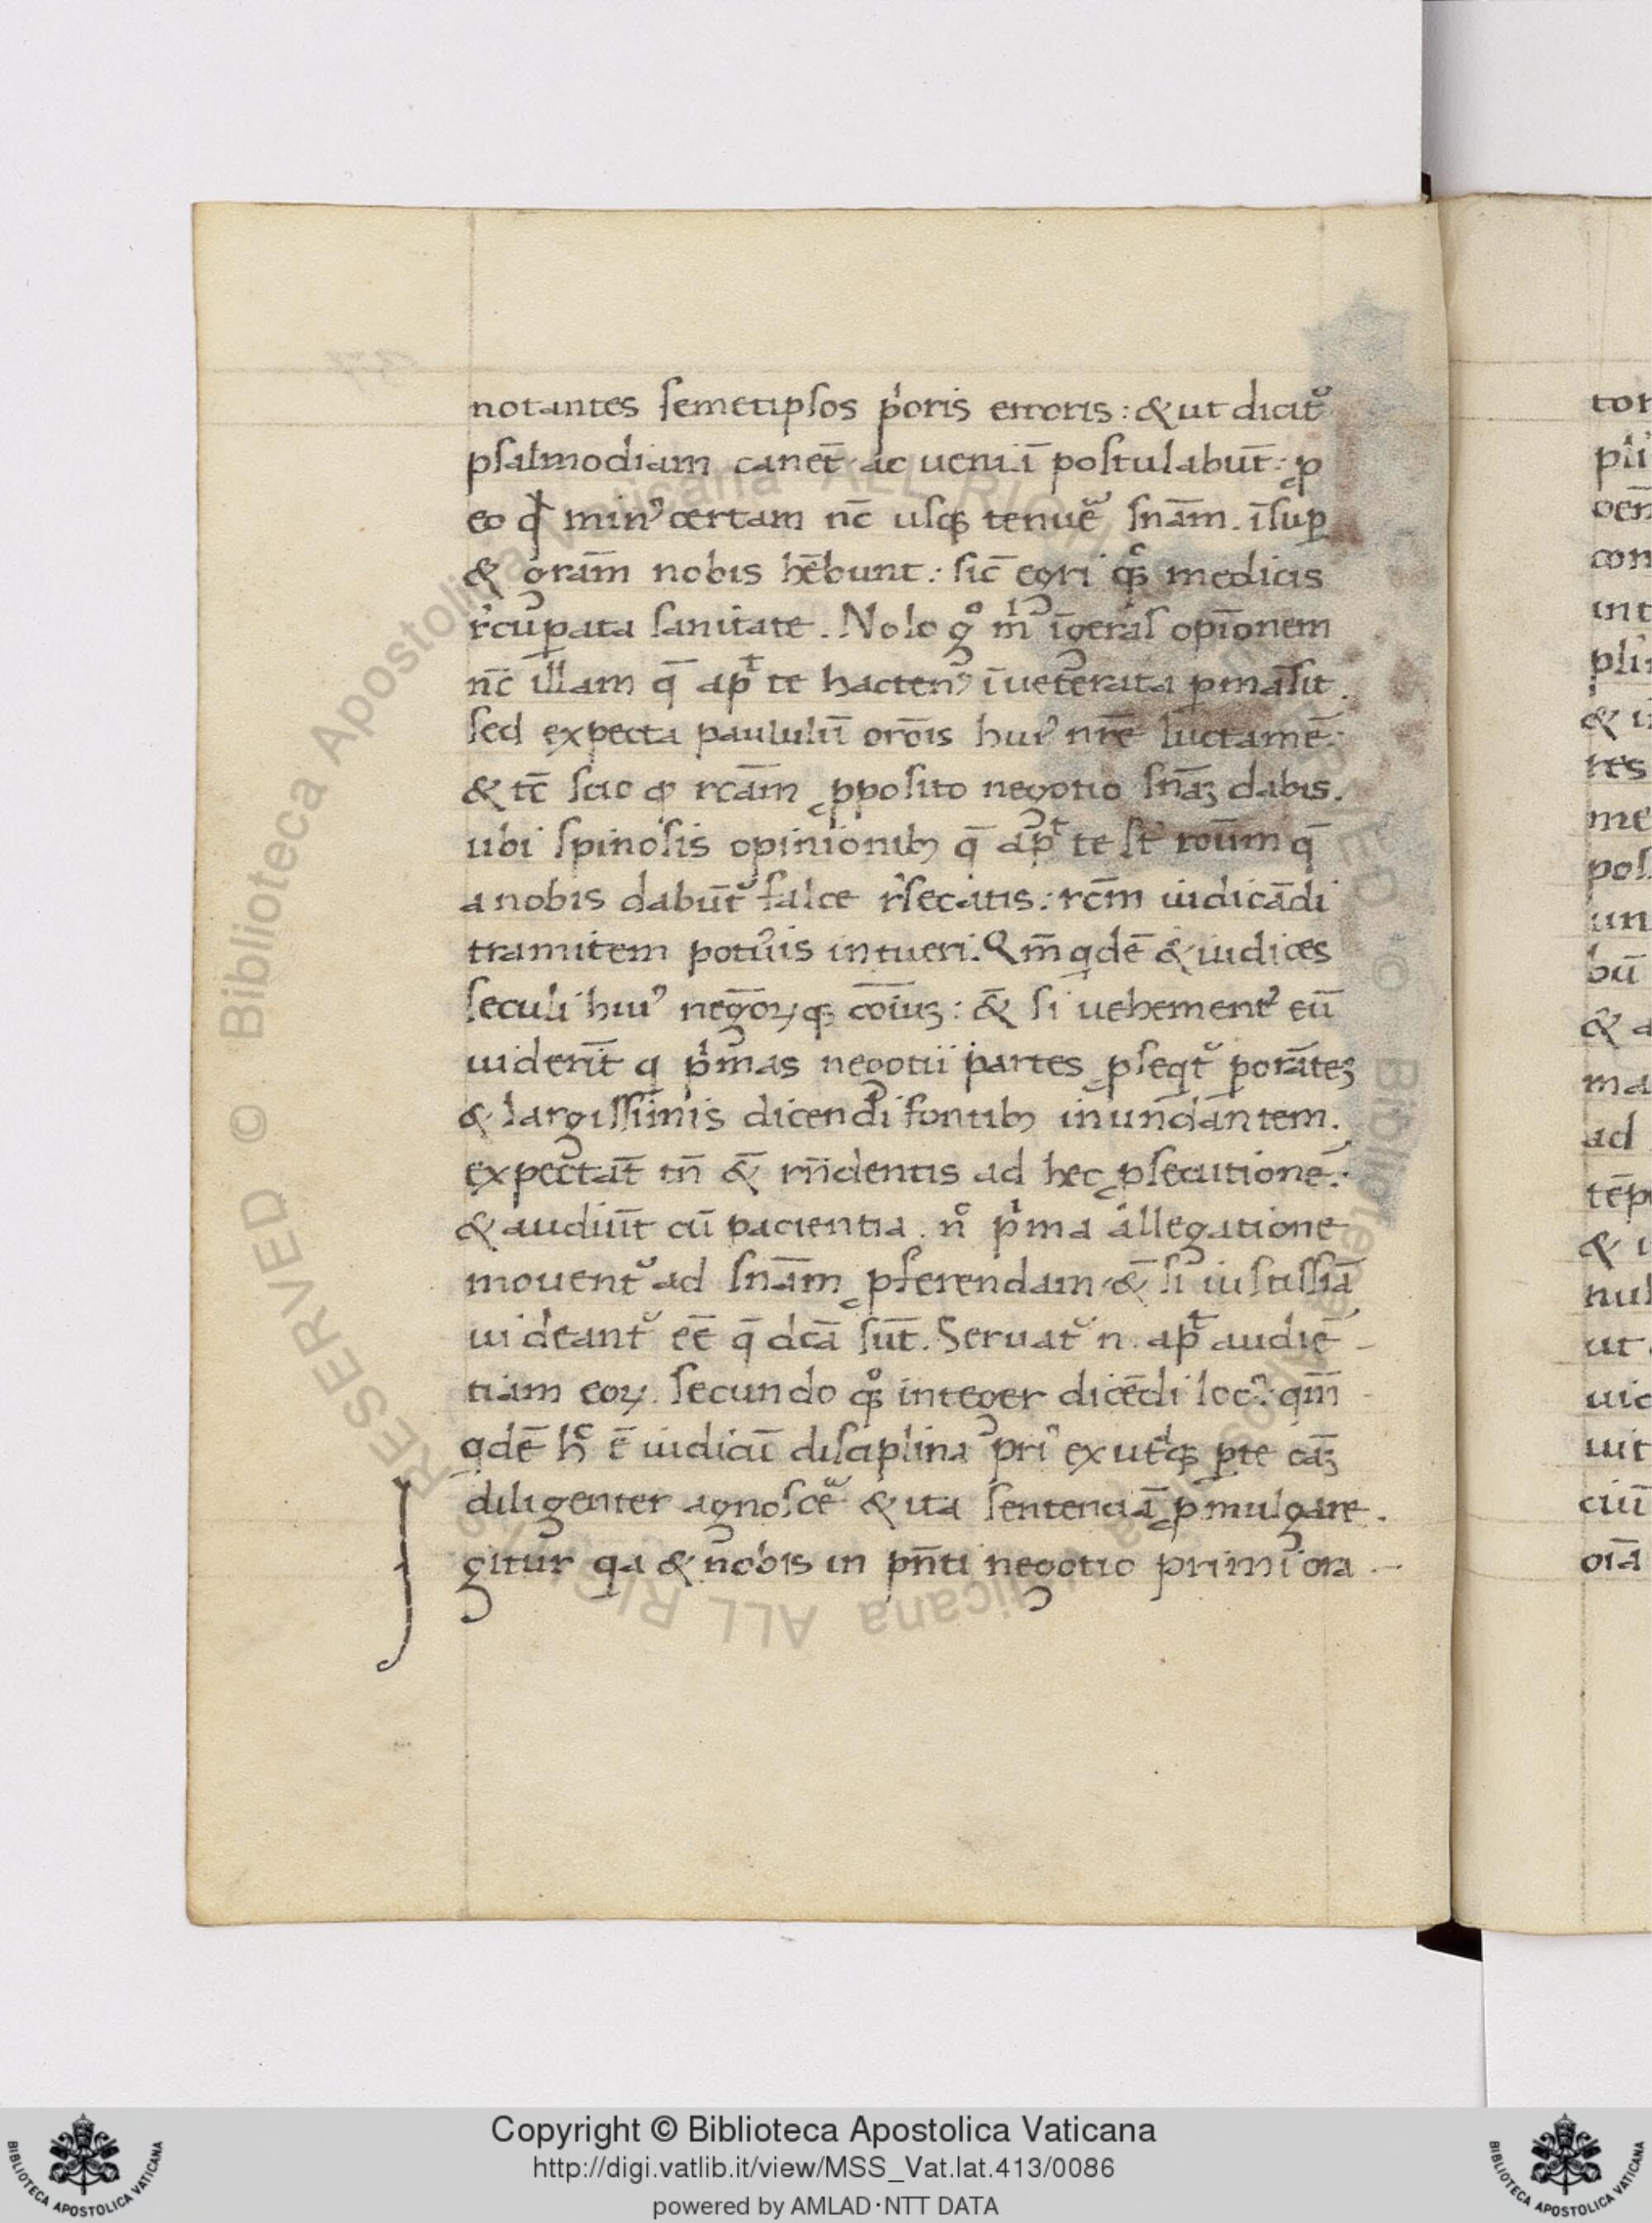 notantes semetipsos p̍oris erroris: & ut dicit᷑
psalmodiam canet̄ ac uenia᷑ī postulabūt: ꝓ
eo ꝙ min᾽ certam nc̄ usq; tenue᷑ snām. īsuꝑ
& grām nobis hēbunt: sic̄ egri q̊s medicis
r̾cuꝑata sanitate. Nolo g̊ m̍ īgeras opīonem
nc̄ illam q̄ ap᷑ te hacten᾽ īueterata ꝑmāsit.
sed expecta paululū orōis hui᾽ nrē luctamē:
& tc̄ scio ꝙ rcām ꝓposito negotio snāꝫ dabis.
ubi spinosis opinionibꝫ q̄ ap᷑ te st̄ roūm q̄
a nobis dabūt᷑ falce r̾secatis: rcm̄ iudicādi
tramitem pot᾽is intueri. Qm̄ qdē & iudices
seculi hui᾽ negōꝝ q; cōiuꝫ: &̄ si uehement᾽ eū
uiderīt q p̍mas negotii partes ꝓseqt᷑ ꝑorāteꝫ
& largissimis dicendi fontibꝫ inundantem.
expectāt tn̄ &̄ rn̄dentis ad hec ꝓsecutionē:
& audiūt cū pacientia. n̊ p̍ma allegatione
mouent᷑ ad snām ꝓferendam &̄ si iustissīa
uideant᷑ eē q̄ dcā sūt. Seruat᷑ n. ap᷑ audiē-
tiam eoꝝ. secundo q̊; integer dicēdi loc᾽: qm̄
qdē h᷒ ē iudicū disciplina pri᾽ ex utq; ꝑte cāꝫ
diligenter agnosce᷑ & ita sentenciā ꝓmulgare.
Jgitur qa & nobis in pn̄ti negotio primi ora-
tor
Copyright © Biblioteca Apostolica Vaticana
http://digi.vatlib.it/view/MSS_Vat.lat.413/0086
powered by AMLAD·NTT DATA